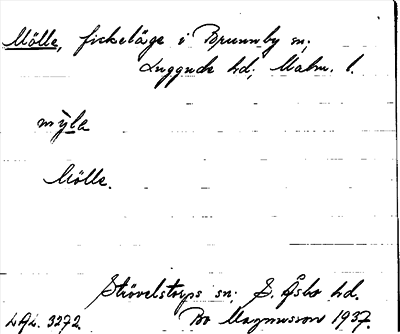 Mölle, fiskeläge i Brunnby sn;
Luggude hd; Malm. l.
mỳla
Mölle.
Strövelstorps sn; S. Åsbo hd.
LAL. 3272. Bo Magnusson 1937.